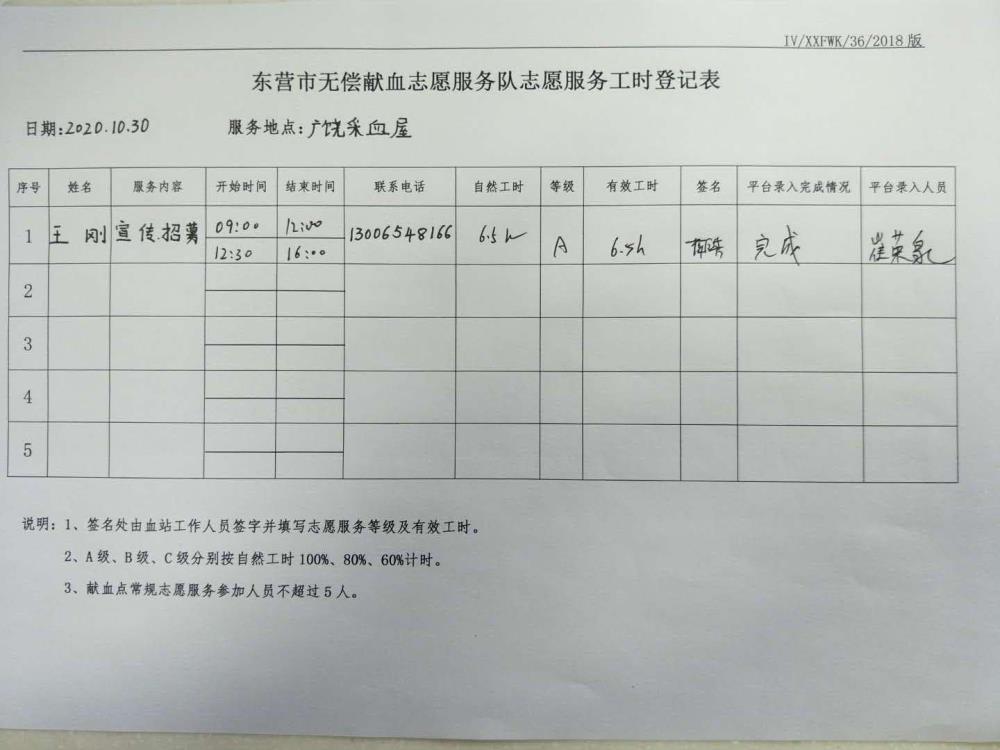 IV/XXFWK/36/2018 版
东营市无偿献血志愿服务队志愿服务工时登记表
日期:2020.10.30 服务地点:广饶采血屋
序号 姓名 服务内容 开始时间 结束时间 联系电话 自然工时 等级 有效工时 签名 平台录入完成情况 平台录入人员
1 王刚 宣传.招募 09:00 12:00 13006548166 6.5h A 6.5h 完成 崔荣泉
12:30 16:00
2
3
4
5
说明: 1、签名处由血站工作人员签字并填写志愿服务等级及有效工时。
2、A 级、B 级、C 级分别按自然工时 100%、80%、60%计时。
3、献血点常规志愿服务参加人员不超过 5 人。